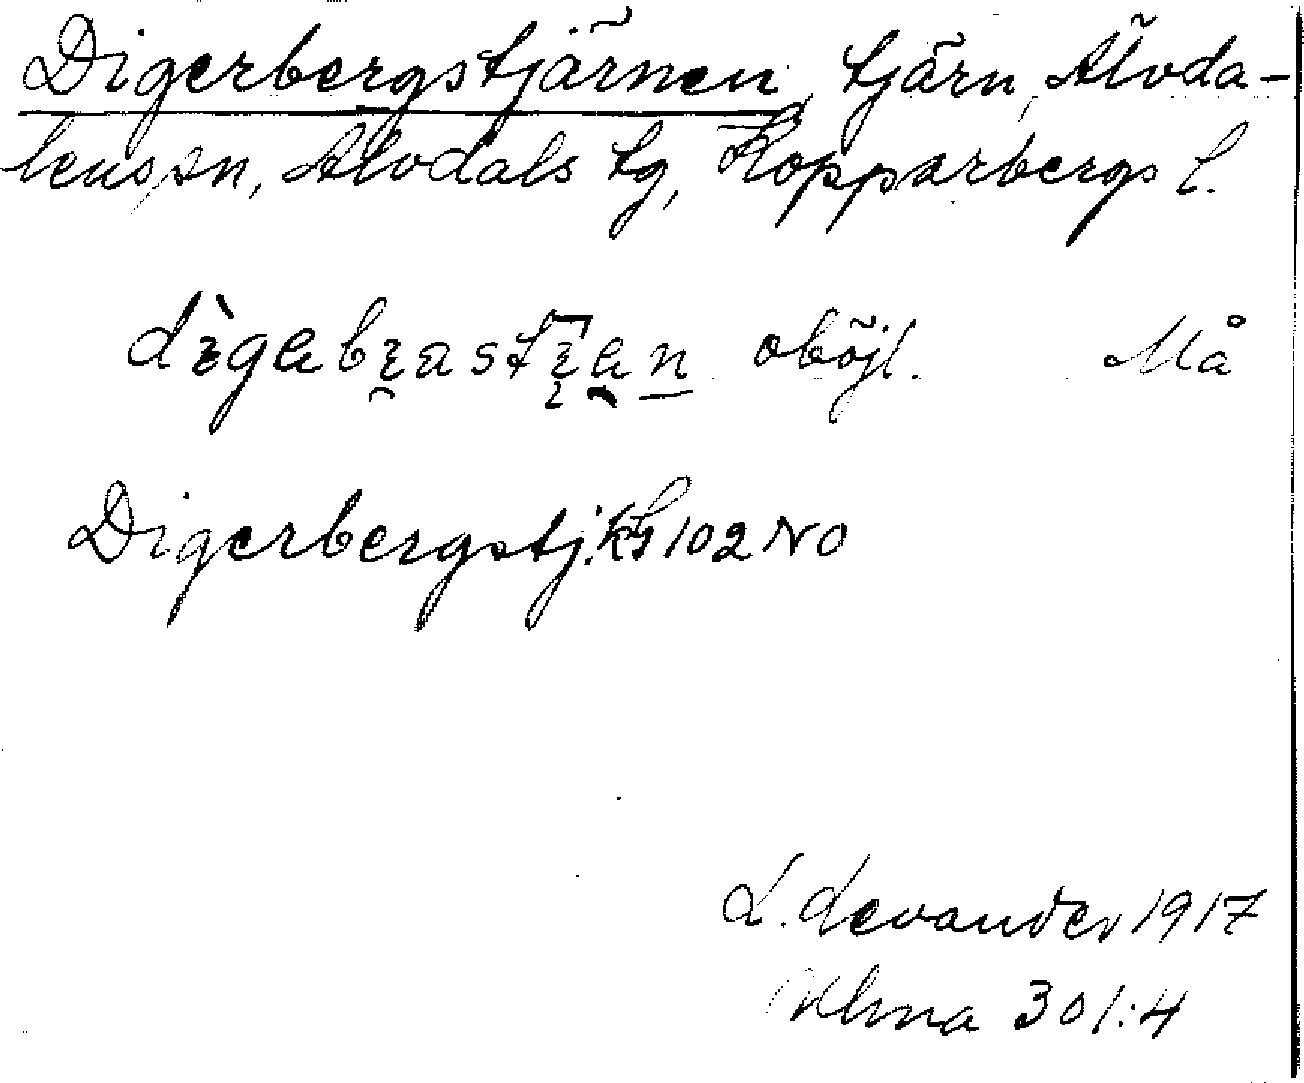 Digerbergstjärnen, tjärn, Älvda-
lens sn, Älvdals tg, Kopparbergs l.
oböjl. Må
Digerbergstj. KG 102 NO
L. Levander 1917
Ulma 301:4